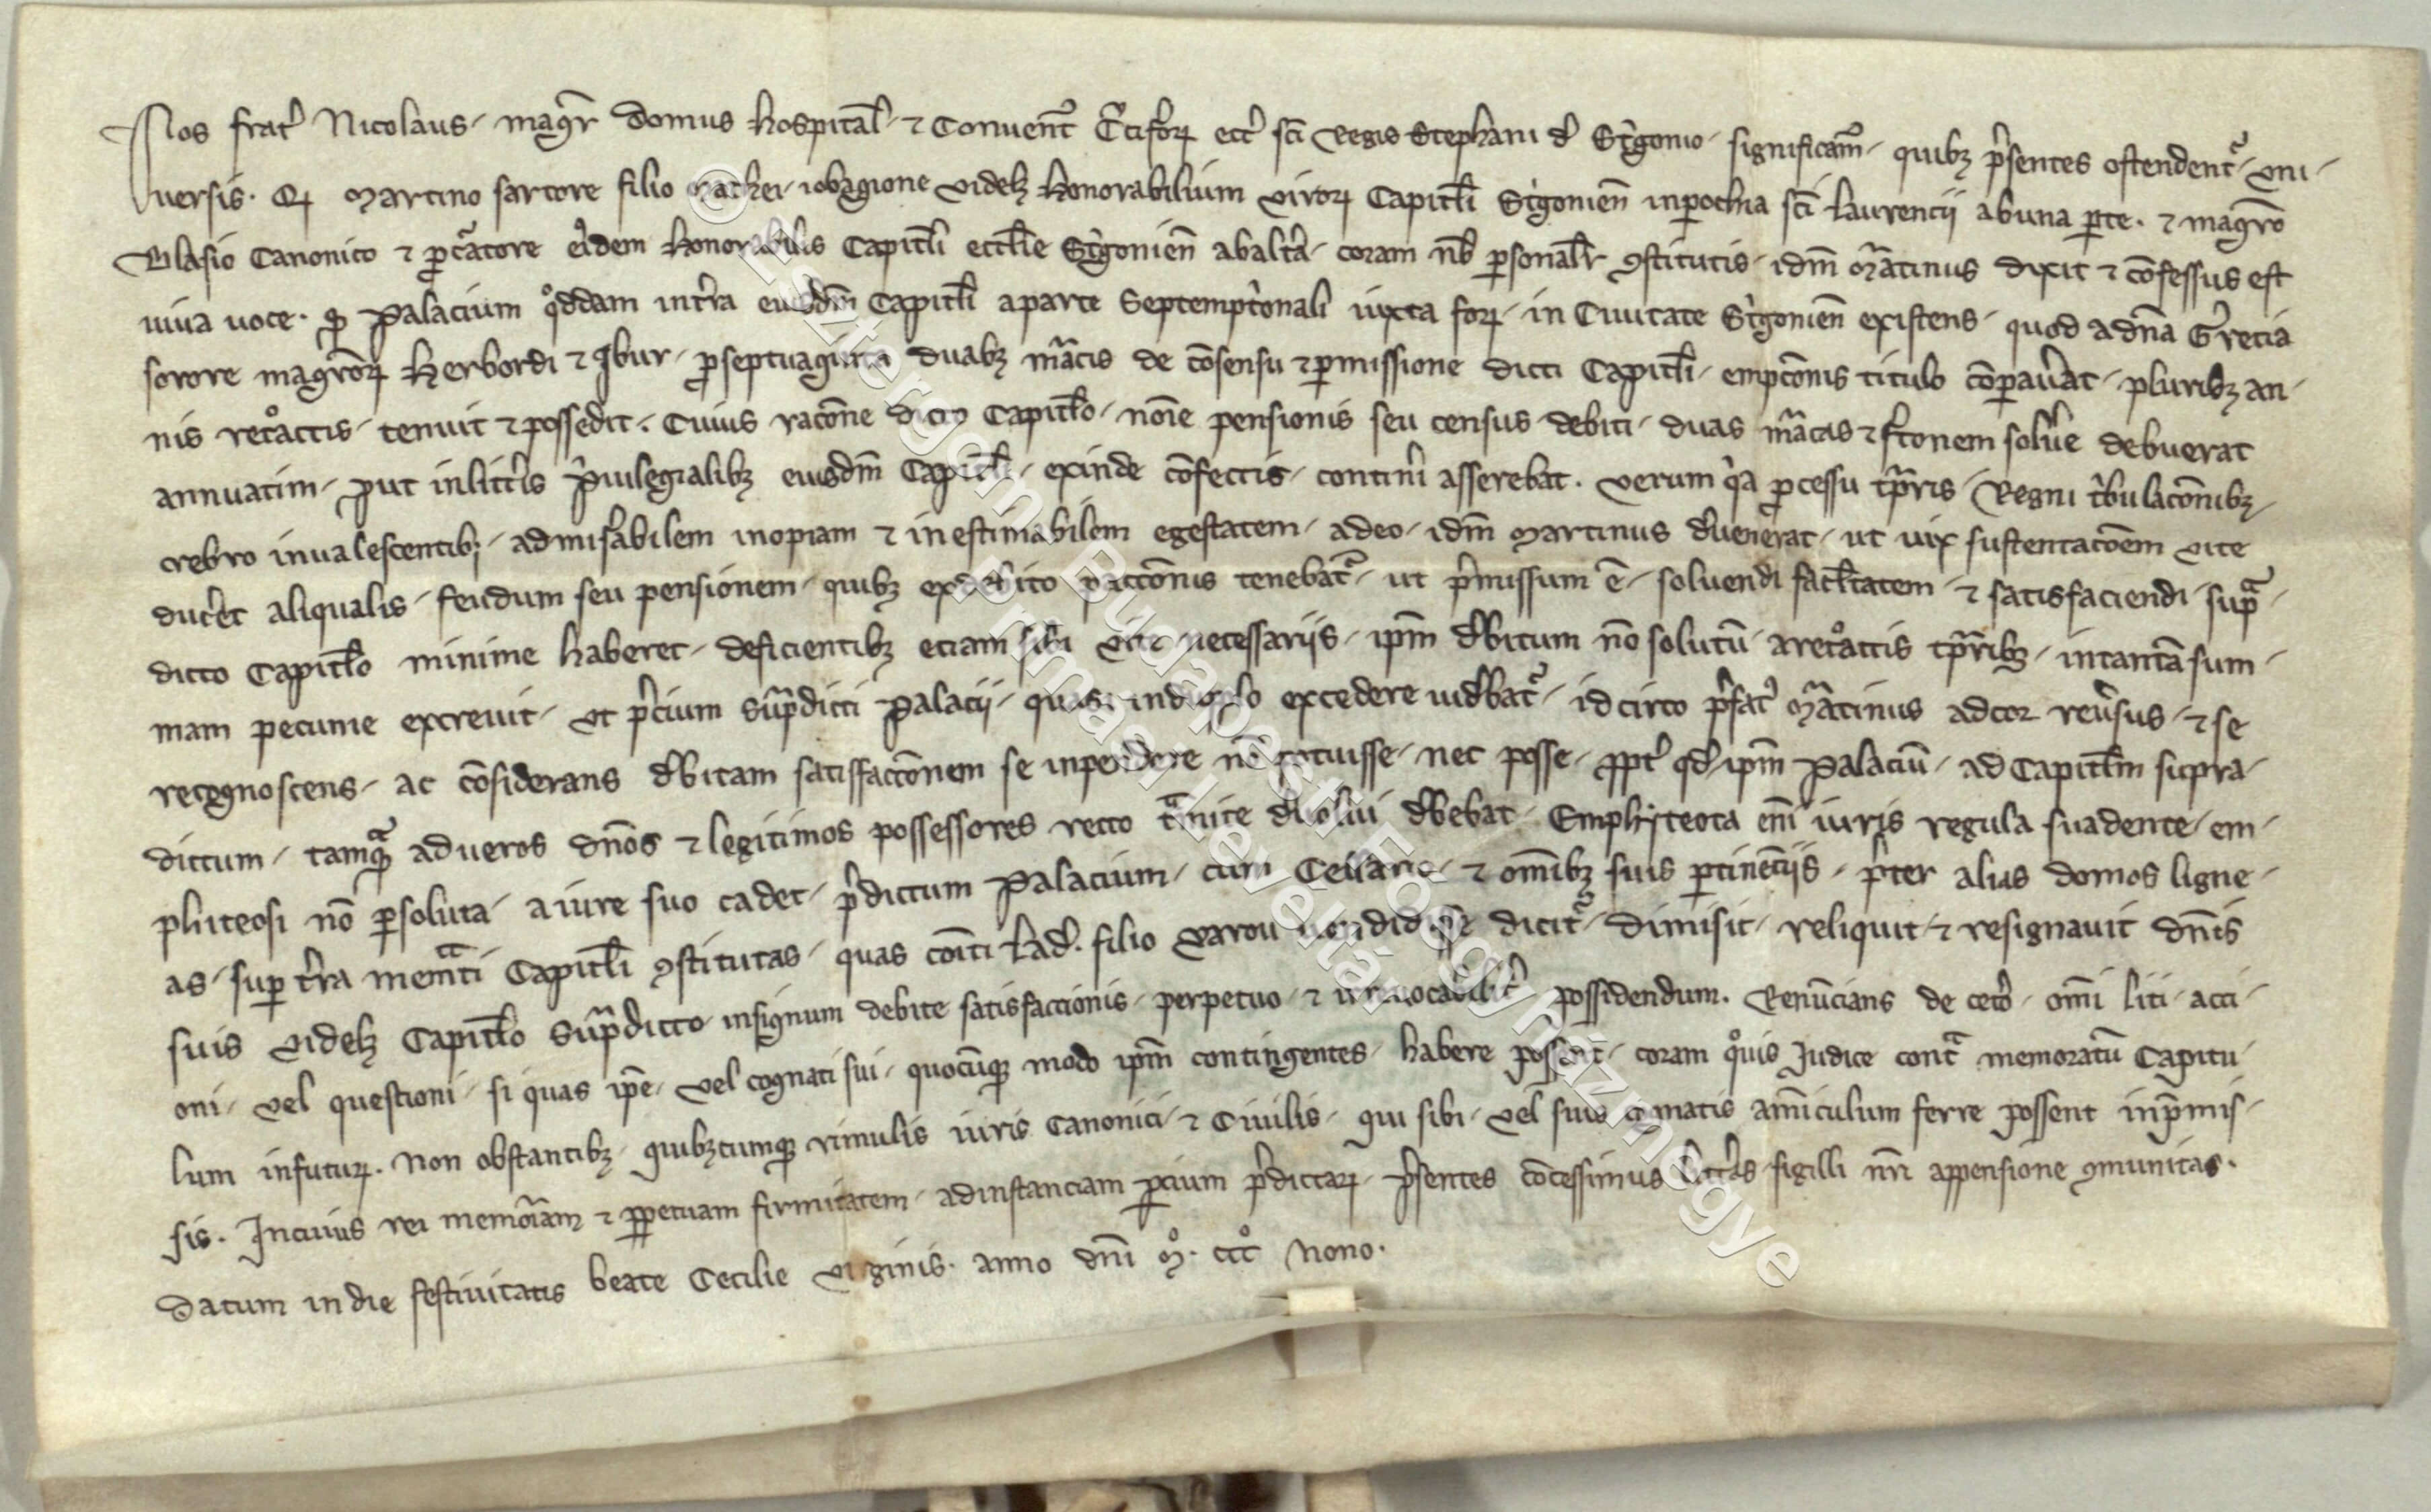 Nos frat᾿ Nicolaus magr̄ domus hospital̄ ⁊ Conuent᾿ Cͥcifeꝝ ecc̄ᵉ sc̄i Regis Stephani d᾿ St᾿gonio significam᾿ quibꝫ p̄sentes ostendent᾿ vni
uersis. Qꝫ Martino sartore filio Mathei iobagione videlꝫ honorabilium viroꝝ Capitl̄i St᾿gonien̄ inꝑochia sc̄i Laurencii abuna ꝑte. ⁊ magr̄o
Blasio Canonico ⁊ ꝓcᵃtore ei᾿dem honorabilis Capitl̄i eccl̄ie St᾿gonien̄ abalt᾿a coram nob̄ ꝑsonalr̄ ꝯstitutis idm̄ Mᵃtinus dixit ⁊ cōfessus est
uiua uoce. ꝙ Palacium qᵒddam int᾿ra eiusdm̄ Capitl̄i aparte Septempt᾿onali iuxta foꝝ in Ciuitate St᾿gonien̄ existens quod adn̄a G᾿recia
sorore magr̄oꝝ Herbordi ⁊ Ibur ꝓseptuaginta duabꝫ mᵃcis de cōsensu ⁊ ꝑmissione dicti Capitl̄i empcōnis titulo cōparau᾿at pluribꝫ an
nis ret᾿ᵒactis tenuit ⁊ possedit. Cuius racōne dicto Capitl̄o noīe pensionis seu census debiti duas mᵃcas ⁊ f᾿tonem solu᾿e debuerat
annuatim ꝓut inlitt᾿is p᾿uilegialibꝫ eiusdm̄ Capitl̄i exinde cōfectis contin᾿i asserebat. Verum qᶦa ꝓcessu tp̄ris Regni t᾿bulacōnibꝫ
crebro inualescentibꝫ admis᾿abilem inopiam ⁊ inestimabilem egestatem adeo idm̄ Martinus d᾿uenerat ut uix sustentacōem vite
duc᾿et aliqualis feudum seu pensionem quibꝫ exdebito paccōnis tenebat᾿ ut p᾿missum ē soluendi facl̄tatem ⁊ satisfaciendi supᵃ
dicto Capitl̄o minime haberet deficientibꝫ etiam sibi vite necessariis ipm̄ d᾿bitum nō solutū aret᾿ᵒactis tp̄ribꝫ intantā sum
mam pecunie excreuit vt p᾿cium sup᾿dicti Palacii quasi induplo excedere uid᾿bat᾿ idcirco p᾿fat᾿ Mᵃtinus adcor reu᾿sus ⁊ se
recognoscens ac cōsiderans d᾿bitam satisfaccōnem se inpendere nō potuisse nec posse ꝓpt᾿ qd᾿ ipm̄ Palaciū ad Capitl̄m supra
dictum tamqᵃꝫ adueros dn̄os ⁊ legitimos possessores recto tᵃmite d᾿uolui d᾿bebat Emphiteota em̄ iuris regula suadente em
phiteosi nō ꝑsoluta aiure suo cadet p᾿dictum Palacium cum Cellario ⁊ om̄ibꝫ suis ꝑtinēciis p᾿ter alias domos ligne
as suꝑ t᾿ra memᵃti Capitl̄i ꝯstitutas quas cōiti Lad᾿. filio Varou uendidisse dicit᾿ dimisit reliquit ⁊ resignauit dn̄is
suis videlꝫ Capitl̄o sup᾿dicto insignum debite satisfactionis perpetuo ⁊ irreuocabilit᾿ possidendum. Renūcians de cet᾿o om̄i liti acci
oni vel questioni si quas ip̄e vel cognati sui quocūqꝫ modo ipm̄ contingentes habere possent coram qᵒuis Iudice contᵃ memoratū Capitu
lum infutuꝝ. Non obstantibꝫ quibꝫcumqꝫ rimulis iuris Canonici ⁊ Ciuilis qui sibi vel suis cognatis amīculum ferre possent inp᾿mis
sis. Incuius rei memōiam ⁊ ꝑpetuam firmitatem adinstanciam ꝑcium p᾿dictaꝝ p᾿sentes cōcessimus litt᾿as sigilli nr̄i appensione ꝯmunitas.
Datum in die festiuitatis beate Cecilie virginis. anno dn̄i Mᵒ. cccᵒ Nono.
© Esztergom-Budapesti Főegyházmegye
Prímási Levéltár